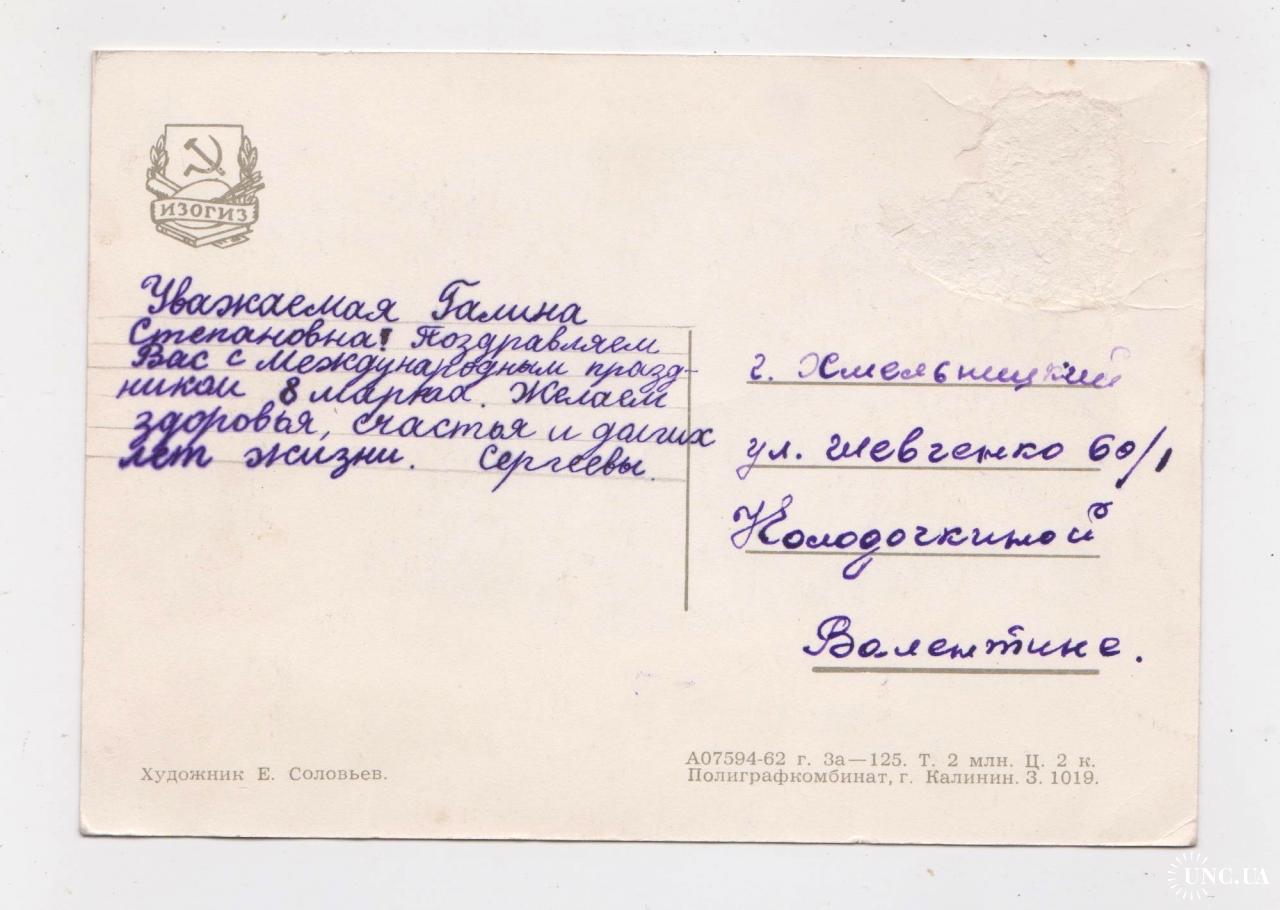 ИЗОГИЗ
Уважаемая Галина
Степановна! Поздравляем
Вас с международным празд-
ником 8 марта. Желаем
здоровья, счастья и долгих
лет жизни. Сергеевы.
г. Хмельницкий
ул. Шевченко 60/1
Колодочкиной
Валентине.
Художник Е. Соловьев.
А07594-62 г. За—125. Т. 2 млн. Ц. 2 к.
Полиграфкомбинат, г. Калинин. З. 1019.
UNC.UA